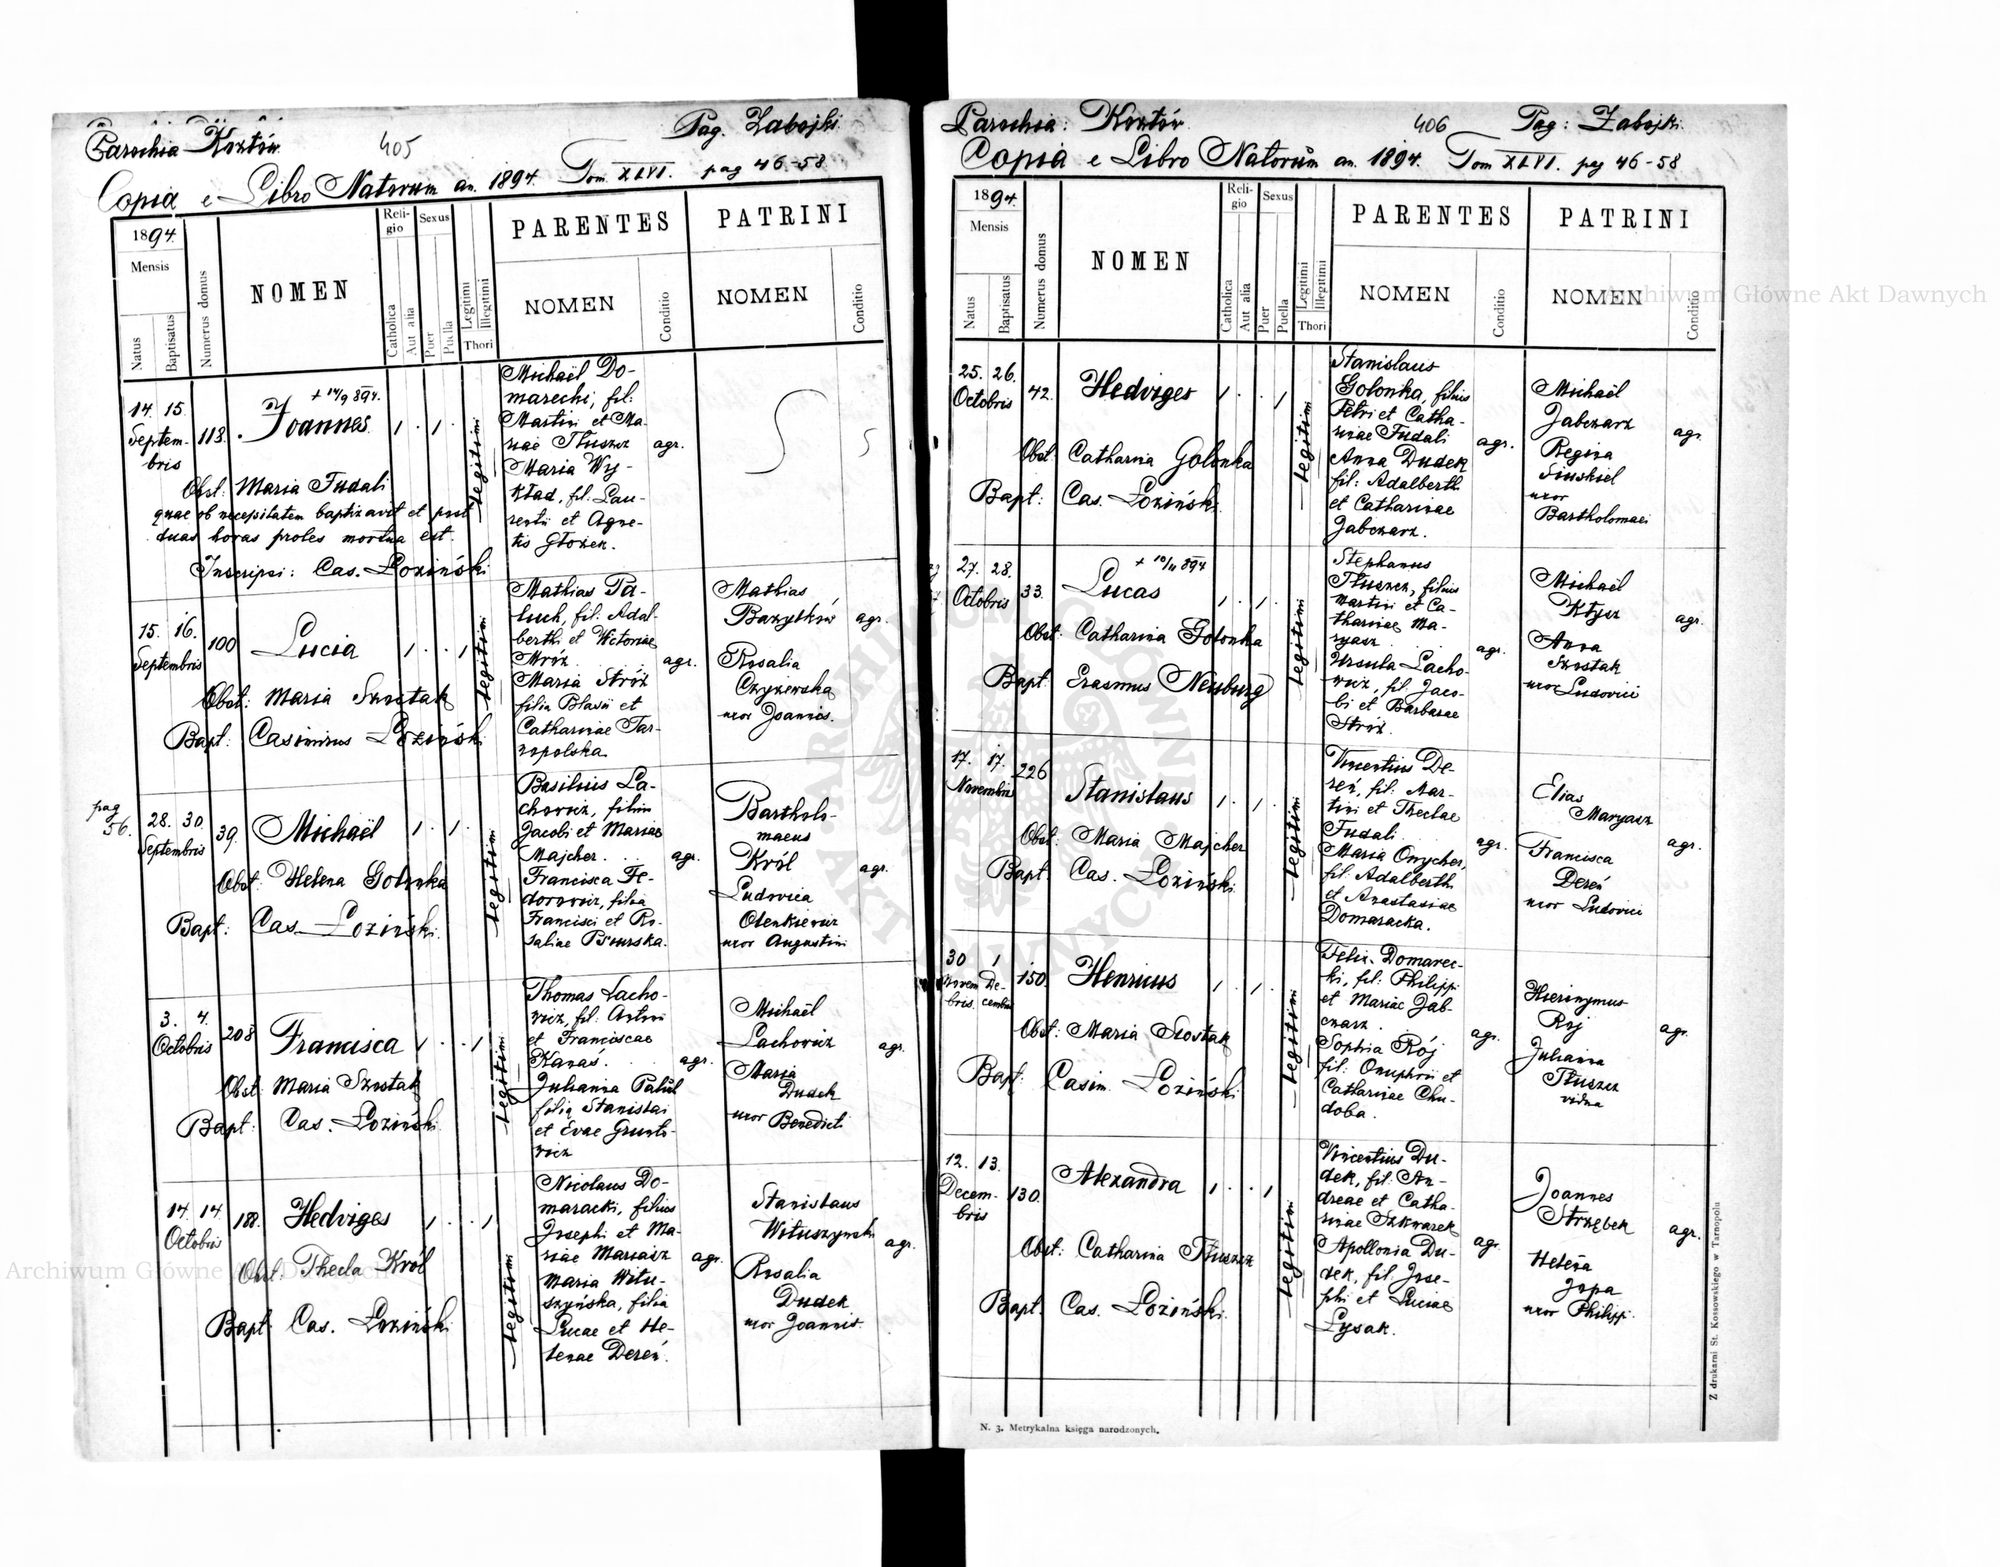 Parochia Kozłów 405 Pag. Zabojki
Copia e Libro Natorum an. 1894. Tom XLVI. pag 46-58
1894.
Mensis
Natus
Baptisatus
Numerus domus
NOMEN
Religio
Catholica
Aut alia
Sexus
Puer
Puella
Legitimi
Illegitimi
Thori
PARENTES
NOMEN
Conditio
PATRINI
NOMEN
Conditio
14. 15.
Septem-
bris
113.
+ 14/9 894.
Joannes
1 . 1 .
Legitimi
Obst: Maria Fudali
quae ob necessitatem baptizavit et post
duas horas proles mortua est.
Inscripsi: Cas. Łoziński
Michaël Do-
marecki, fil:
Martini et Ma-
riae Tłuszcz
Maria Wy-
kład, fil: Lau-
rentii et Agne-
tis Głożek.
agr.
15. 16.
Septembris
100
Lucia
1 . . 1
Legitimi
Obst: Maria Szostak
Bapt: Casimirus Łoziński
Mathias Pa-
luch, fil: Adal-
berti et Victoriae
Mróz
Maria Stróż
filia Blasii et
Catharinae Tar-
nopolska
agr.
Mathias
Bazylków
Rosalia
Czyżewska
uxor Joannis.
agr.
pag
56.
28. 30.
Septembris
39.
Michaël
1 . 1 .
Legitimi
Obst: Helena Golonka
Bapt: Cas. Łoziński.
Basilius La-
chowicz, filius
Jacobi et Mariae
Majcher
Francisca Fe-
dorowicz, filia
Francisci et Ro-
saliae
agr.
Bartholo-
maeus
Król
Ludovica
Olenkiewicz
uxor Augustini
agr.
3. 4.
Octobris
208
Francisca
1 . . 1
Legitimi
Obst: Maria Szostak
Bapt: Cas. Łoziński
Thomas Lacho-
wicz, fil: Antoni
et Franciscae
Kanaś.
Julianna Paluch
filia Stanislai
et Evae Grunto-
wicz
agr.
Michaël
Lachowicz
Maria
Dudek
uxor Benedicti
agr.
14. 14.
Octobris
188.
Hedviges
1 . . 1
Legitimi
Obst: Thecla Król
Bapt: Cas. Łoziński
Nicolaus Do-
maracki, filius
Josephi et Ma-
riae Mariasz
Maria Witu-
szyńska, filia
Lucae et He-
lenae Dereń.
agr.
Stanislaus
Wituszynski
Rosalia
Dudek
uxor Joannis.
agr.
Parochia: Kozłów 406 Pag: Zabojki.
Copia e Libro Natorum an. 1894. Tom XLVI. pag 46-58
1894.
Mensis
Natus
Baptisatus
Numerus domus
NOMEN
Religio
Catholica
Aut alia
Sexus
Puer
Puella
Legitimi
Illegitimi
Thori
PARENTES
NOMEN
Conditio
PATRINI
NOMEN
Conditio
25. 26.
Octobris
42.
Hedviges
1 . . 1
Legitimi
Obst: Catharina Golonka
Bapt: Cas. Łoziński.
Stanislaus
Golonka, filius
Petri et Catha-
rinae Fudali
Anna Dudek
fil: Adalberti
et Catharinae
Jabczarz.
agr.
Michaël
Jabczarz
Regina
Siuskiel
uxor
Bartholomaei
agr.
27. 28.
Octobris
33.
+ 10/11 894
Lucas
1 . 1 .
Legitimi
Obst: Catharina Golonka
Bapt: Erasmus Neuburg
Stephanus
Tłuszcz, filius
Martini et Ca-
tharinae Ma-
ryasz
Ursula Lacho-
wicz, fil: Jaco-
bi et Barbarae
Stróż.
agr.
Michaël
Kłysz
Anna
Szostak
uxor Ludovici
agr.
17. 17.
Novembris
226
Stanislaus
1 . 1 .
Legitimi
Obst: Maria Majcher
Bapt: Cas. Łoziński.
Vincentius De-
reń, fil: Mar-
tini et Theclae
Fudali
Maria Onycher,
fil: Adalberti
et Anastasiae
Domaracka.
agr.
Elias
Maryasz
Francisca
Dereń
uxor Ludovici
agr.
30 1
Novem- De-
bris cembris
150.
Henricus
1 . 1 .
Legitimi
Obst: Maria Szostak
Bapt: Casim. Łoziński
Felix Domarec-
ki, fil: Philippi
et Mariae Jab-
czarz.
Sophia Rój
fil: Onuphrii et
Catharinae Chu-
doba.
agr.
Hieronymus
Rój
Julianna
Tłuszcz
vidua
agr.
12. 13.
Decem-
bris
130.
Alexandra
1 . . 1
Legitimi
Obst: Catharina Tłuszcz
Bapt: Cas. Łoziński.
Vincentius Du-
dek, fil: An-
dreae et Catha-
rinae Szkwarek
Apollonia Du-
dek, fil: Jose-
phi et Luciae
Łysak.
agr.
Joannes
Strzębek
Helena
Jopa
uxor Philippi.
agr.
N. 3. Metrykalna księga narodzonych.
Z drukarni St. Kossowskiego w Tarnopolu
Archiwum Główne Akt Dawnych
Archiwum Główne Akt Dawnych
ARCHIWUM GŁÓWNE AKT DAWNYCH